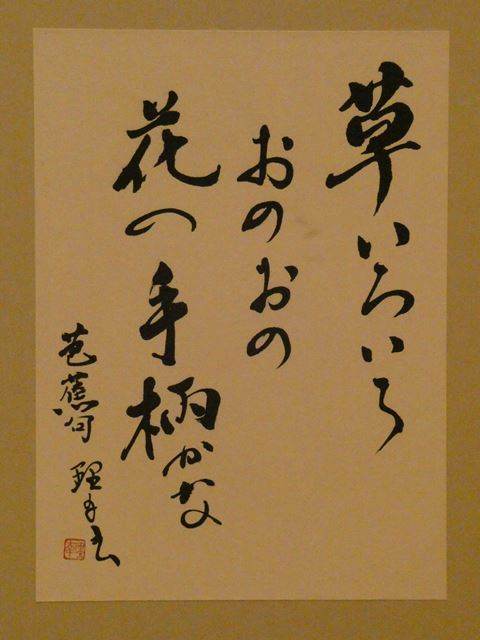 草いろいろ
おのおの
花の手柄かな
芭蕉句